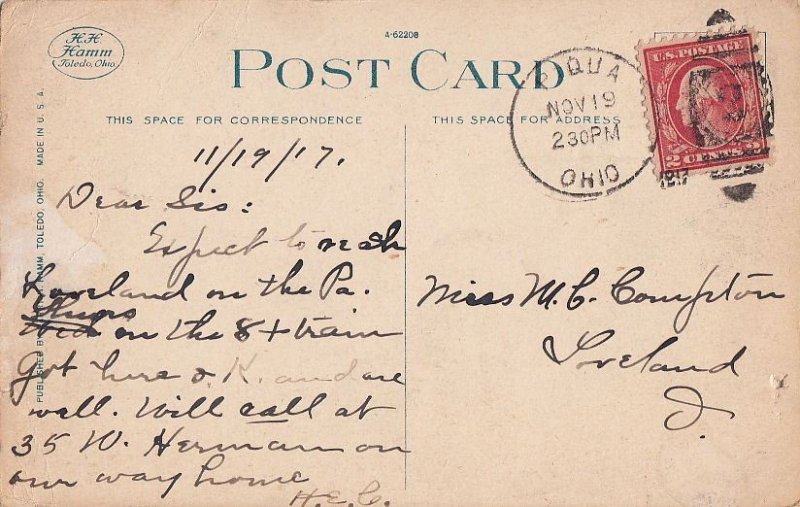 H.H.
Hamm
Toledo, Ohio.
A-62208
POST CARD
THIS SPACE FOR CORRESPONDENCE
THIS SPACE FOR ADDRESS
PIQUA
NOV 19
230PM
OHIO
1917
U.S. POSTAGE
2 CENTS 2
PUBLISHED BY HAMM, TOLEDO, OHIO. MADE IN U. S. A.
11/19/17.
Dear Sis:
Expect to reach
Loveland on the Pa.
Thurs
Wed on the 8+ train
Got here & K. and are
well. Will call at
35 W. Herman on
our way home
H.E.C.
Miss M. C. Compton
Loveland
O.